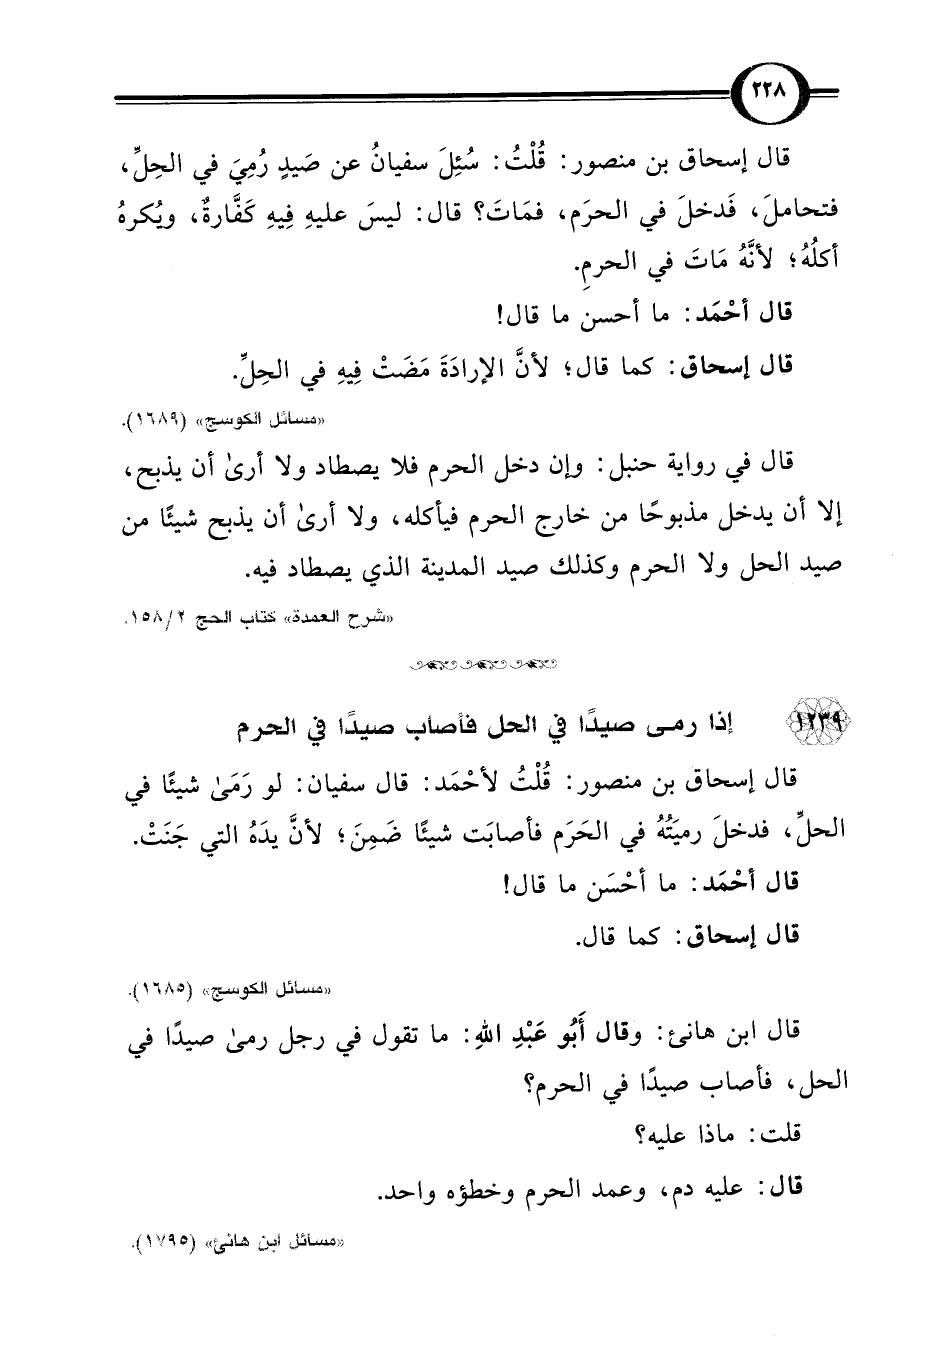 ٢٢٨
قال إسحاق بن منصور: قُلْتُ: سُئِلَ سفيانُ عن صَيدٍ رُمِيَ في الحِلِّ،
فتحاملَ، فَدخلَ في الحرَمِ، فمَاتَ؟ قال: ليسَ عليهِ فِيهِ كَفَّارةٌ، ويُكرهُ
أكلُهُ؛ لأنَّهُ مَاتَ في الحرمِ.
قال أحْمَد: ما أحسن ما قال!
قال إسحاق: كما قال؛ لأنَّ الإرادَةَ مَضَتْ فِيهِ في الحِلِّ.
«مسائل الكوسج» (١٦٨٩).
قال في رواية حنبل: وإن دخل الحرم فلا يصطاد ولا أرىٰ أن يذبح،
إلا أن يدخل مذبوحًا من خارج الحرم فيأكله، ولا أرىٰ أن يذبح شيئًا من
صيد الحل ولا الحرم وكذلك صيد المدينة الذي يصطاد فيه.
«شرح العمدة» كتاب الحج ٢/ ١٥٨.
١٢٣٩ إذا رمى صيدًا في الحل فأصاب صيدًا في الحرم
قال إسحاق بن منصور: قُلْتُ لأحْمَد: قال سفيان: لو رَمَىٰ شيئًا في
الحلِّ، فدخلَ رميَتُهُ في الحَرَمِ فأصابَت شيئًا ضَمِنَ؛ لأنَّ يدَهُ التي جَنَتْ.
قال أحْمَد: ما أحْسَن ما قال!
قال إسحاق: كما قال.
«مسائل الكوسج» (١٦٨٥).
قال ابن هانئ: وقال أَبُو عَبْدِ اللهِ: ما تقول في رجل رمىٰ صيدًا في
الحل، فأصاب صيدًا في الحرم؟
قلت: ماذا عليه؟
قال: عليه دم، وعمد الحرم وخطؤه واحد.
«مسائل ابن هانئ» (١٧٩٥).